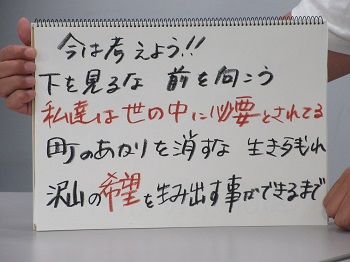 今は考えよう!!
下を見るな 前を向こう
私達は世の中に必要とされてる
町のあかりを消すな 生き残れ
沢山の希望を生み出す事ができるまで